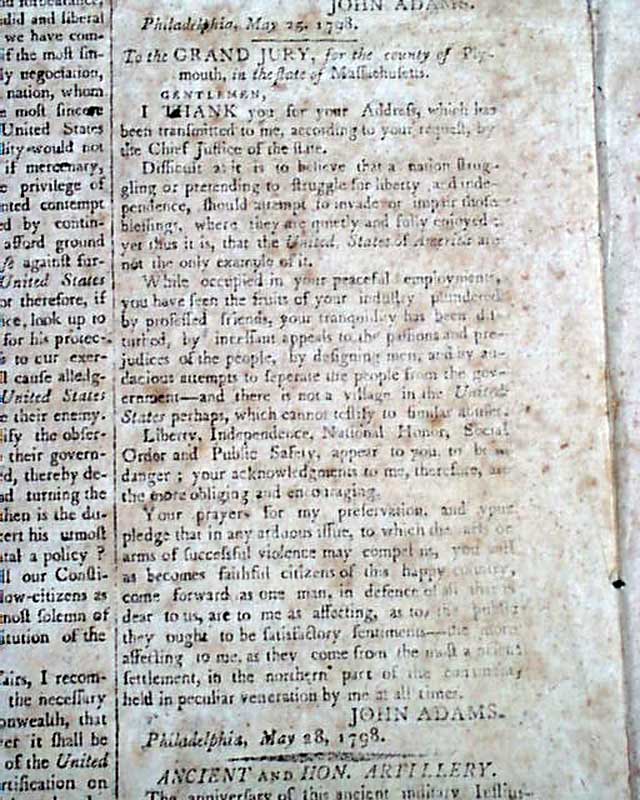 nd forbearance,
ndid and liberal
we have com-
if the most sin-
ly negociation,
nation, whom
e most sincere
United States
lity would not
if mercenary,
e privilege of
nted contempt
ed by contin-
afford ground
against fur-
United States
or therefore, if
nce, look up to
for his protec-
to our exer-
ll cause alledg-
United States
e their enemy.
ify the obser-
their govern-
ed, thereby de-
ad turning the
then is the du-
ert his utmost
tal a policy ?
ll our Consti-
low-citizens as
most solemn of
itution of the
airs, I recom-
the necessary
onwealth, that
er it shall be
of the United
rtification on
JOHN ADAMS.
Philadelphia, May 25, 1798.
To the GRAND JURY, for the county of Ply-
mouth, in the state of Massachusetts.
GENTLEMEN,
I THANK you for your Address, which has
been transmitted to me, according to your request, by
the Chief Justice of the state.
Difficult as it is to believe that a nation strug-
gling or pretending to struggle for liberty and inde-
pendence, should attempt to invade or impair those
blessings, where they are quietly and fully enjoyed ;
yet thus it is, that the United States of America are
not the only example of it.
While occupied in your peaceful employments,
you have seen the fruits of your industry plundered
by professed friends, your tranquility has been dis-
turbed, by incessant appeals to the passions and pre-
judices of the people, by designing men, and by au-
dacious attempts to seperate the people from the gov-
ernment—and there is not a village in the United
States perhaps, which cannot testify to similar abuses.
Liberty, Independence, National Honor, Social
Order and Public Safety, appear to you to be in
danger ; your acknowledgments to me, therefore, are
the more obliging and encouraging.
Your prayers for my preservation, and your
pledge that in any arduous issue, to which the arts or
arms of successful violence may compel us, you will
as becomes faithful citizens of this happy country,
come forward as one man, in defence of all that is
dear to us, are to me as affecting, as to the public
they ought to be satisfactory sentiments—the more
affecting to me, as they come from the most ancient
settlement, in the northern part of the continent,
held in peculiar veneration by me at all times.
JOHN ADAMS.
Philadelphia, May 28, 1798.
ANCIENT AND HON. ARTILLERY.
The anniversary of this ancient military Institu-